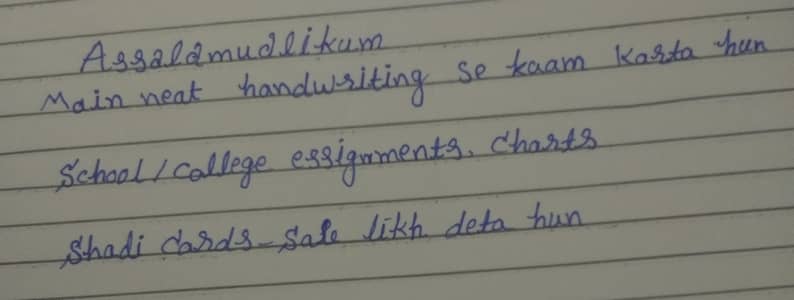 Assalamualikum
Main neat handwriting se kaam Karta hun
School/college essignments. Charts
Shadi Cards - Sale likh deta hun